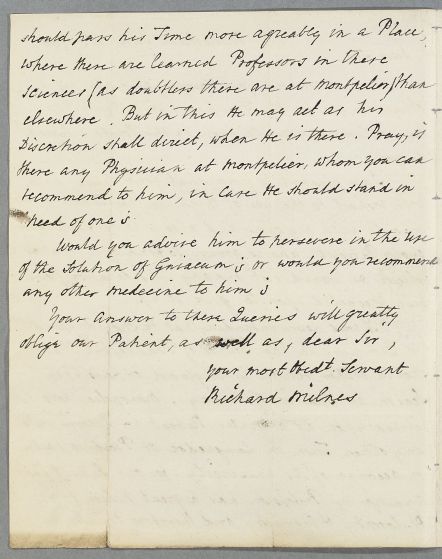 should pass his Time more agreably in a Place,
where there are learned Professors in these
Sciences (as doubtless there are at Montpelier) than
elsewhere. But in this He may act as his
Discretion shall direct, when He is there. Pray, is
there any Physician at Montpelier, whom you can
recommend to him, in Case He should stand in
need of one?
Would you advise him to persevere in the Use
of the Solution of Guiacum? or would you recommend
any other Medecine to him?
Your Answer to these Queries will greatly
oblige our Patient, as well as, dear Sir,
your most Obedt. Servant
Richard Milnes